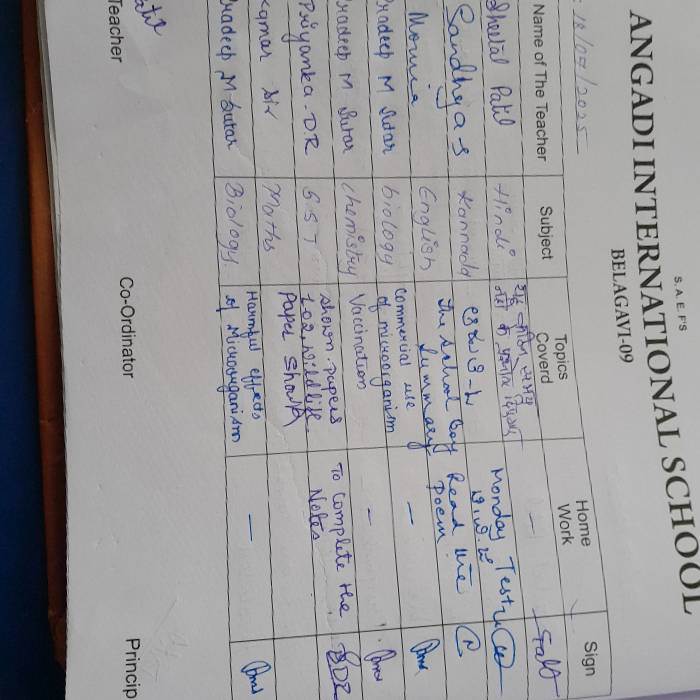 S.A.E.F'S
ANGADI INTERNATIONAL SCHOOL
BELAGAVI-09
: 18/07/2025
Name of The Teacher Subject Topics Coverd Home Work Sign
Sheetal Patil Hindi —
Sandhya-S Kannada Monday Test
Mounie English The School Boy Summary Read the Poem
radeep M Sutar biology Commercial use of microorganism —
radeep M Sutar chemistry Vaccination -
Priyanka-DR S.S.T shown papers 1&2, wildlife To Complete the Notes BDR
Kumar Sir Maths Paper Shown
radeep M Sutar Biology Harmful effects of Microorganism —
Teacher Co-Ordinator Princip